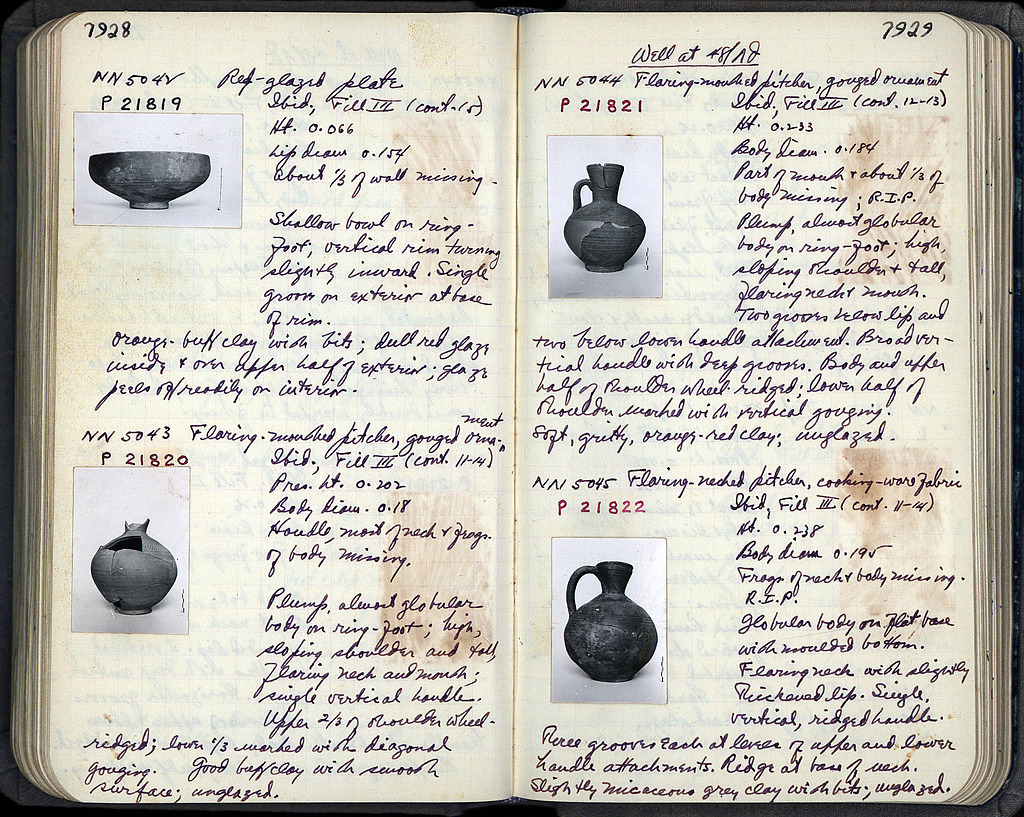 7928
NN 5042 Red-glazed plate
P 21819 Ibid, Fill III (cont. 15)
Ht. 0.066
Lip diam 0.154
about 1/3 of wall missing-
Shallow bowl on ring-
foot; vertical rim turning
slightly inward. Single
groove on exterior at base
of rim.
Orange-buff clay with bits; dull red glaze
inside & over upper half of exterior; glaze
peels off readily on interior.
NN 5043 Flaring-mouthed pitcher, gouged orna-
ment
P 21820 Ibid., Fill III (cont. 11-14)
Pres. ht. 0.202
Body diam. 0.18
Handle, most of neck & frags.
of body missing.
Plump, almost globular
body on ring-foot; high,
sloping shoulder and tall,
flaring neck and mouth;
single vertical handle.
Upper 2/3 of shoulder wheel-
ridged; lower 1/3 marked with diagonal
gouging. Good buff clay with smooth
surface; unglazed.
7929
Well at 48/ΛΔ
NN 5044 Flaring-mouthed pitcher, gouged ornament
P 21821 Ibid, Fill III (cont. 12-13)
Ht. 0.233
Body diam. 0.184
Part of mouth & about 1/3 of
body missing; R.I.P.
Plump, almost globular
body on ring-foot; high,
sloping shoulder & tall,
flaring neck & mouth.
Two grooves below lip and
two below lower handle attachment. Broad ver-
tical handle with deep grooves. Body and upper
half of shoulder wheel-ridged; lower half of
shoulder marked with vertical gouging.
Soft, gritty, orange-red clay; unglazed.
NN 5045 Flaring-necked pitcher, cooking-ware fabric
P 21822 Ibid, Fill III (cont. 11-14)
Ht. 0.238
Body diam 0.195
Frags of neck & body missing.
R.I.P.
Globular body on flat base
with moulded bottom.
Flaring neck with slightly
thickened lip. Single
vertical, ridged handle.
Three grooves each at levels of upper and lower
handle attachments. Ridge at base of neck.
Slightly micaceous grey clay with bits; unglazed.